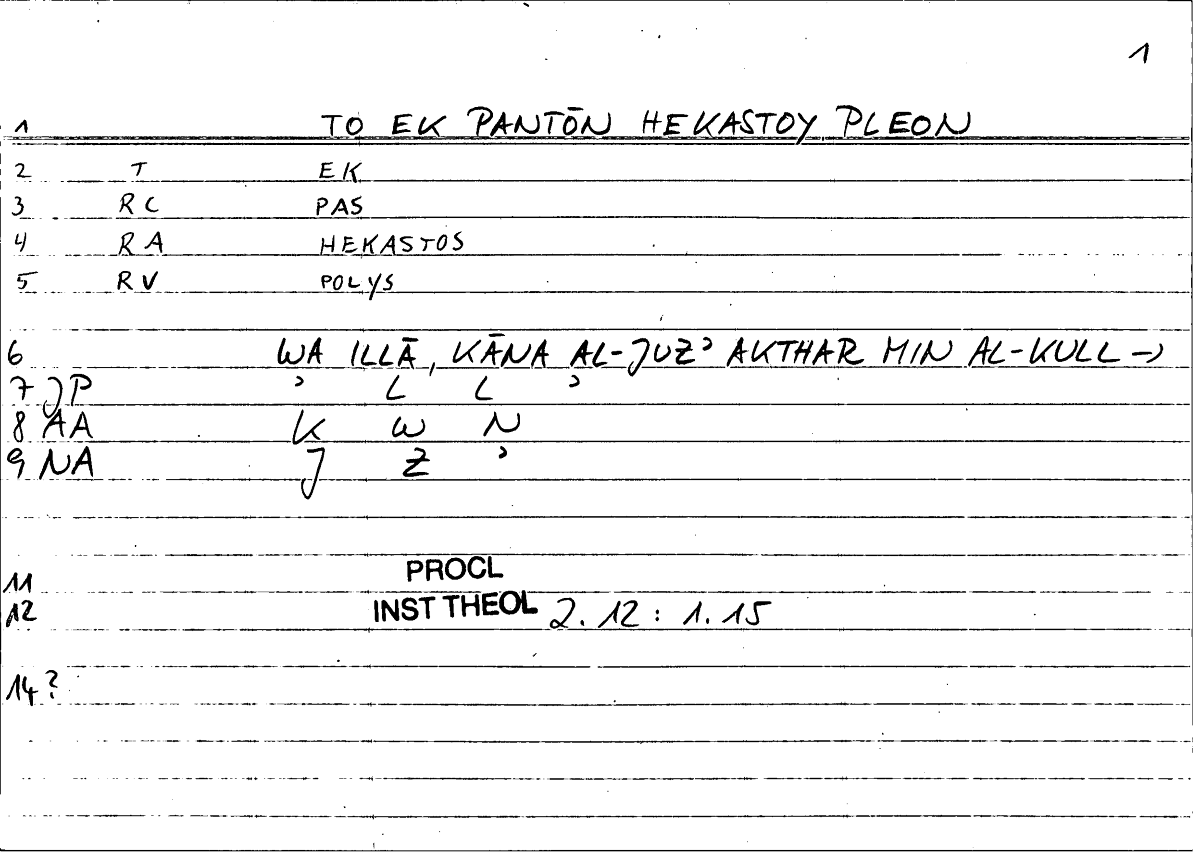 1
1 TO EK PANTŌN HEKASTOY PLEON
2 T EK
3 RC PAS
4 RA HEKASTOS
5 RV POLYS
6 WA ILLĀ, KĀNA AL-JUZʾ AKTHAR MIN AL-KULL →
7 JP ʾ L L ʾ
8 AA K W N
9 NA J Z ʾ
11 PROCL
12 INST THEOL 2.12 : 1.15
14?